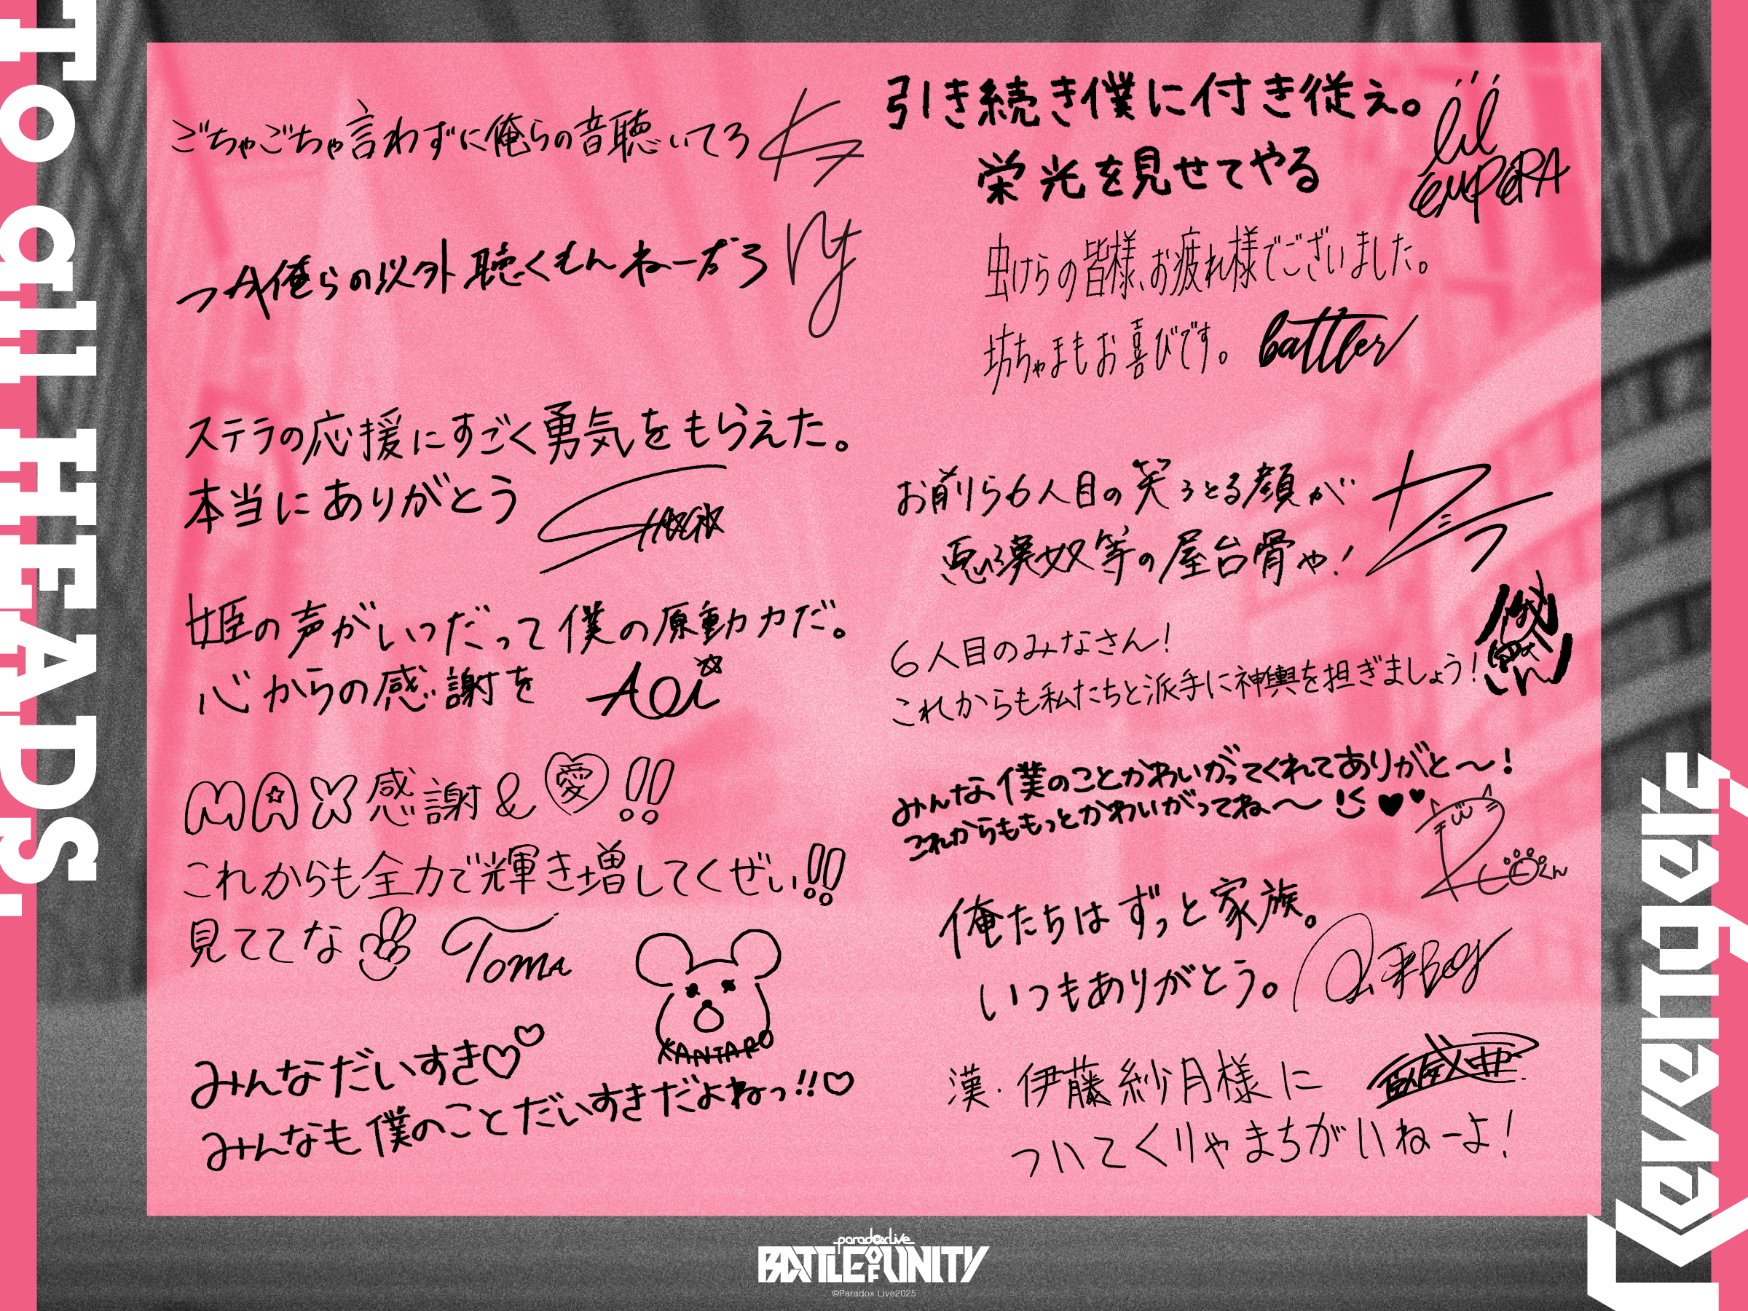 To all HEADS.
ごちゃごちゃ言わずに俺らの音聴いてろ
つーか俺らの以外聴くもんねーだろ
ny
ステラの応援にすごく勇気をもらえた。
本当にありがとう
姫の声がいつだって僕の原動力だ。
心からの感謝を
Aoi
MAX感謝&愛!!
これからも全力で輝き増してくぜい!!
見ててな
Toma
KANTARO
みんなだいすき♡♡
みんなも僕のことだいすきだよねっ!!♡
引き続き僕に付き従え。
栄光を見せてやる
lil EMPERA
虫けらの皆様、お疲れ様でございました。
坊ちゃまもお喜びです。
battler
お前ら6人目の笑うとる顔が
悪漢奴等の屋台骨や!
6人目のみなさん!
これからも私たちと派手に神輿を担ぎましょう!
みんな僕のことかわいがってくれてありがと〜!
これからももっとかわいがってね〜 ♥♥
俺たちはずっと家族。
いつもありがとう。
漢・伊藤紗月様に
ついてくりゃまちがいねーよ!
Revenger
paradoxlive
BATTLE OF UNITY
©Paradox Live2025